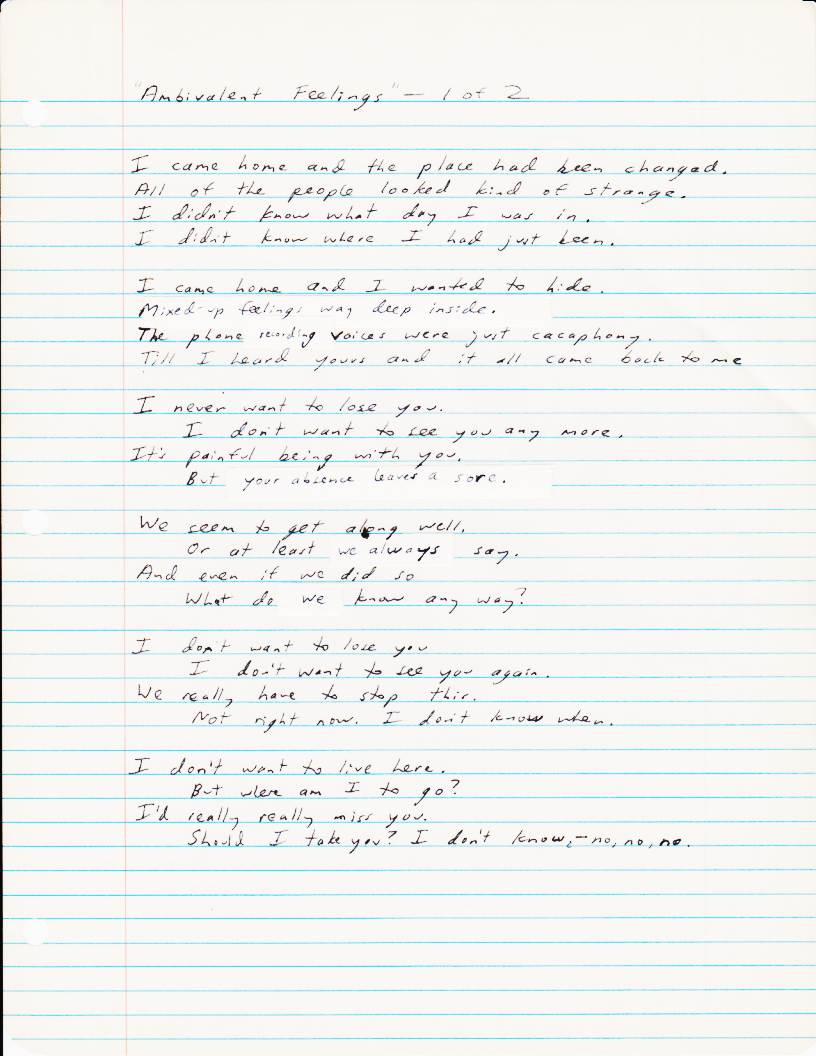 "Ambivalent Feelings" - 1 of 2
I came home and the place had been changed.
All of the people looked kind of strange.
I didn't know what day I was in.
I didn't know where I had just been.
I came home and I wanted to hide.
Mixed-up feelings way deep inside.
The phone recording voices were just cacaphony.
Till I heard yours and it all came back to me
I never want to lose you.
I don't want to see you any more.
It's painful being with you.
But your absence leaves a sore.
We seem to get along well.
Or at least we always say.
And even if we did so
What do we know any way?
I don't want to lose you
I don't want to see you again.
We really have to stop this.
Not right now. I don't know when.
I don't want to live here.
But where am I to go?
I'd really really miss you.
Should I take you? I don't know, - no, no, no.